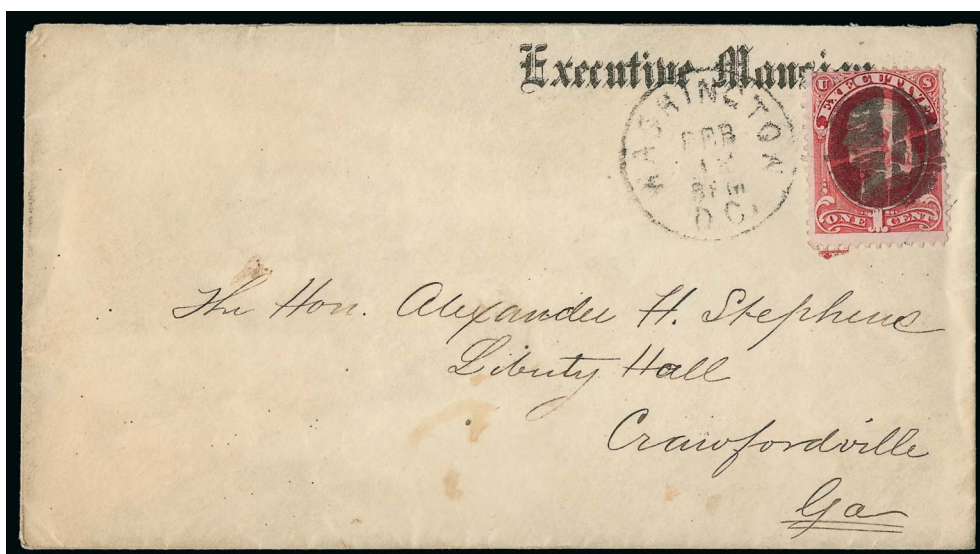 Executive Mansion
WASHINGTON
FEB
8PM
D.C.
U S
EXECUTIVE
ONE 1 CENT
The Hon. Alexander H. Stephens
Liberty Hall
Crawfordville
Ga